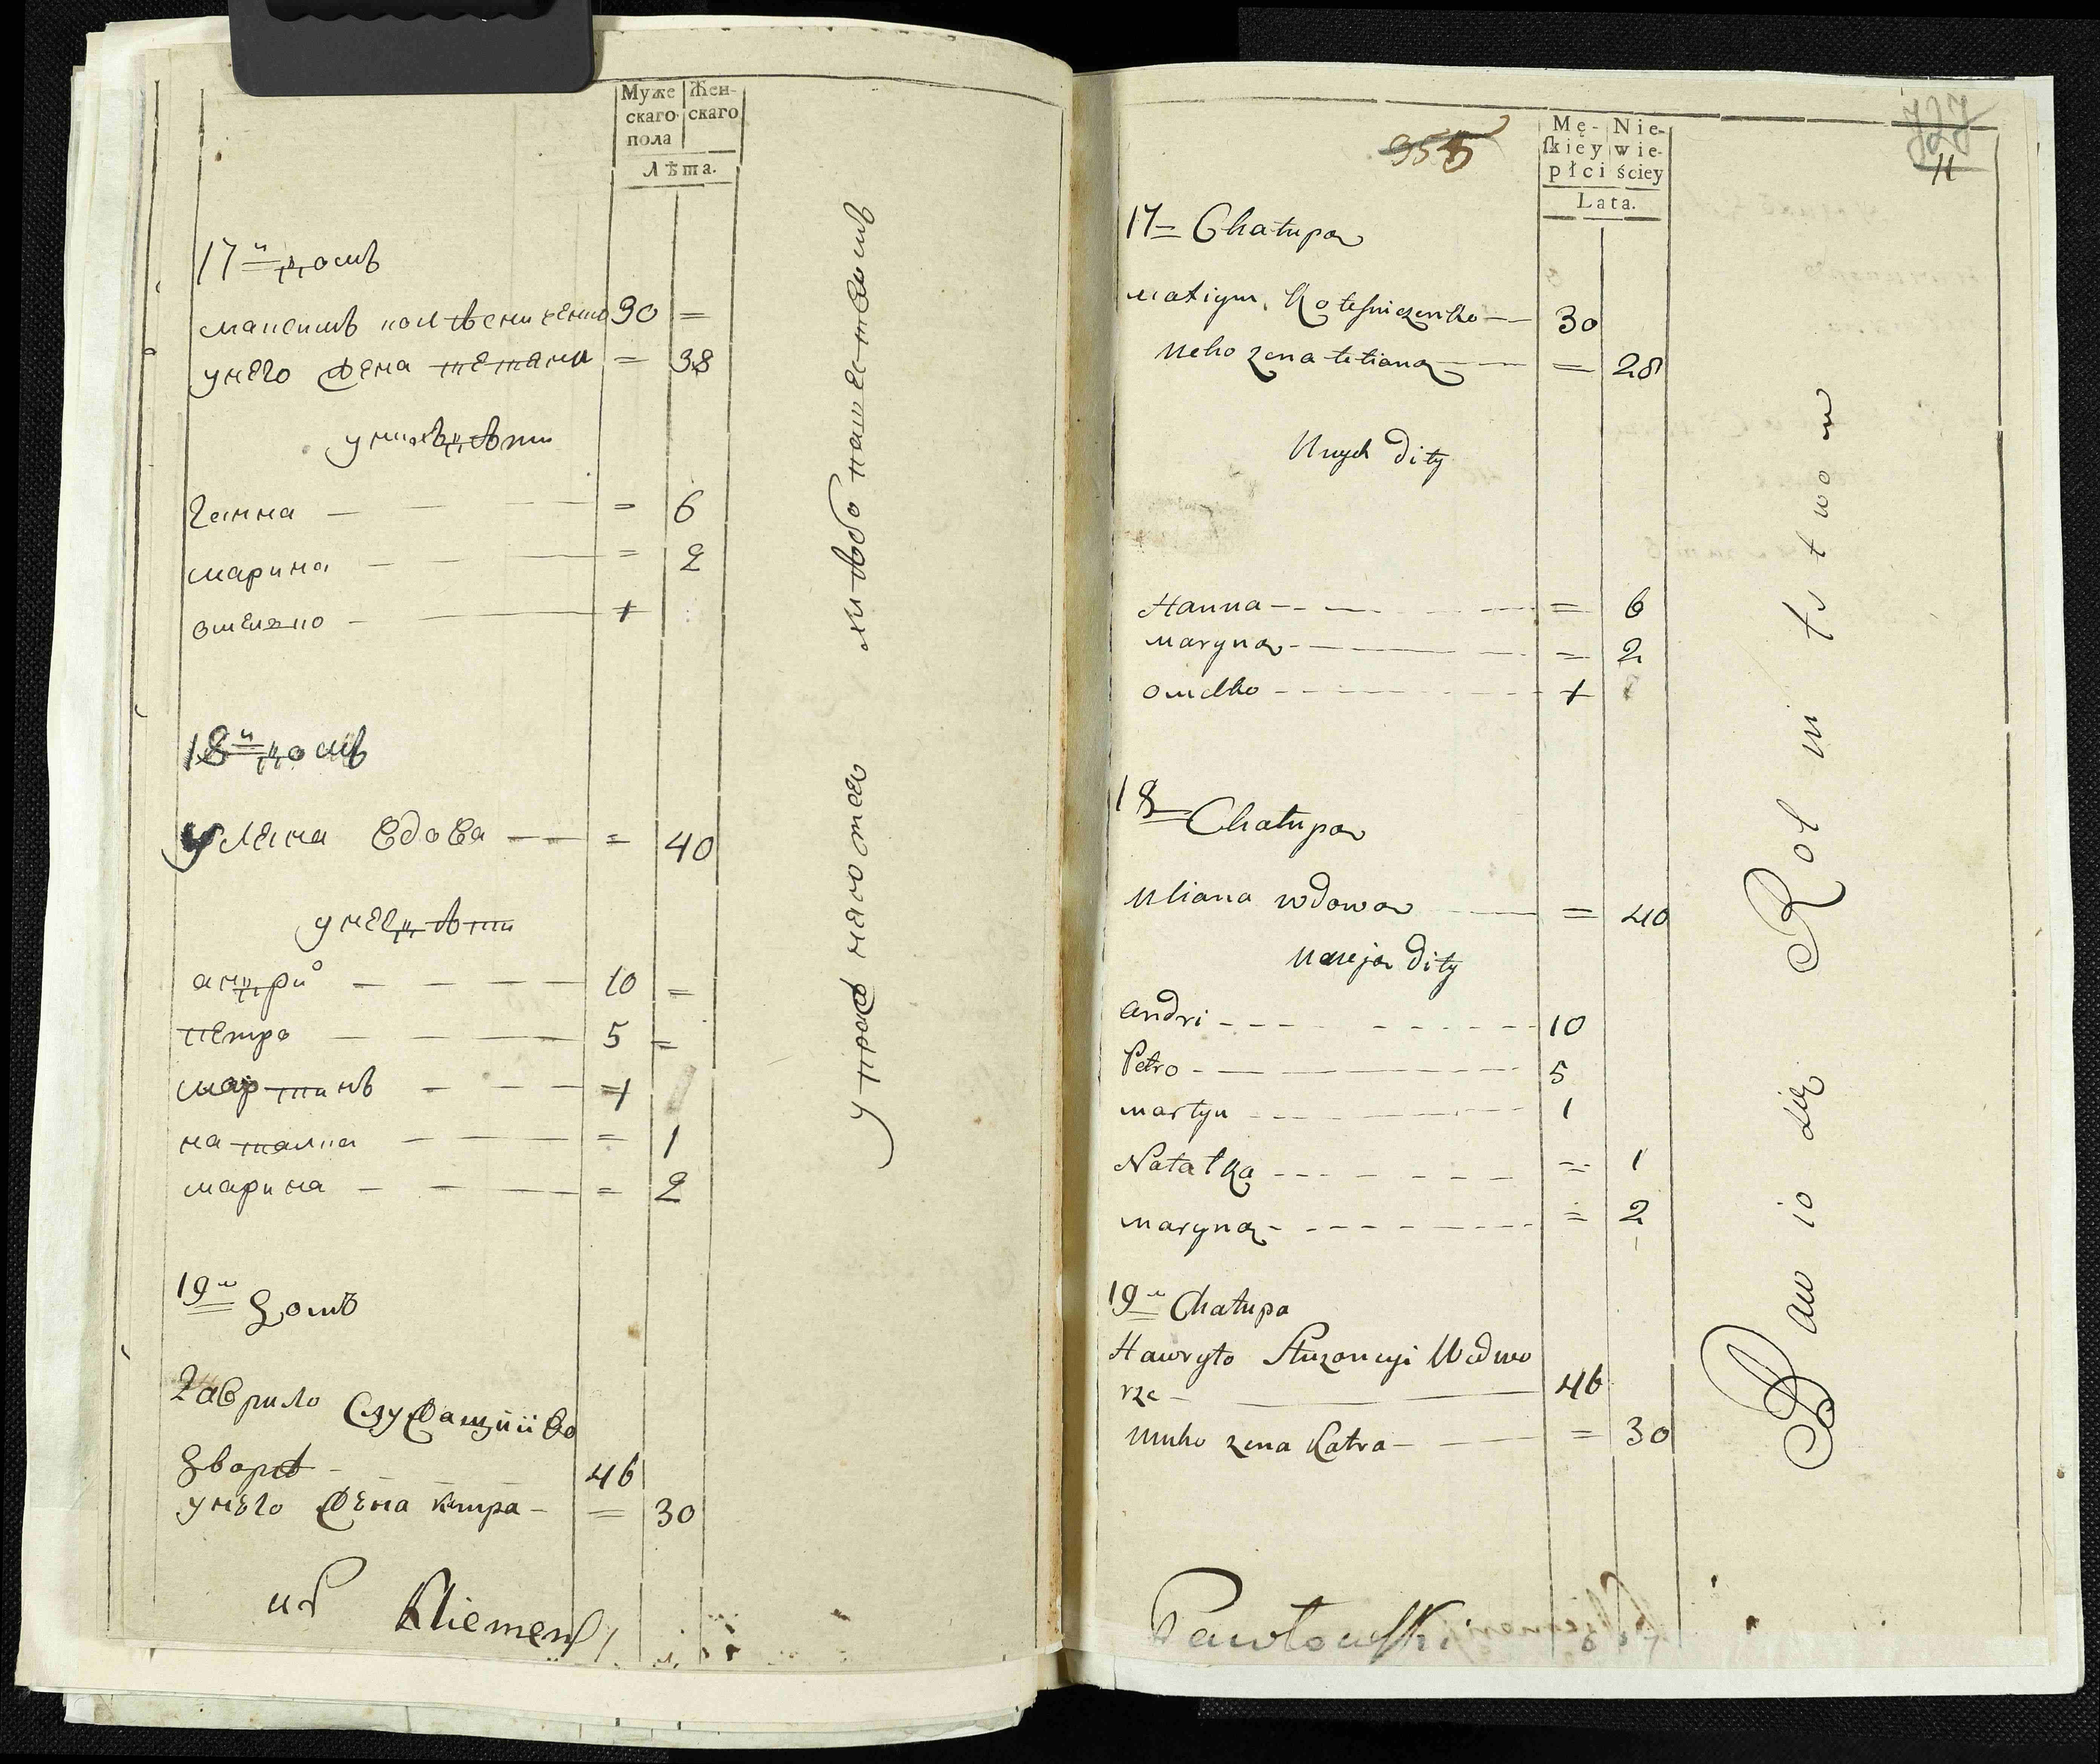 Муже
скаго
пола
Жен-
скаго
Лѣта.
17й домъ
максимъ колѣсниченко 30 =
у него жена тетяна = 38
у нихъ дѣти
ганна — — — = 6
марина — — — = 2
омелко — — +
18й домъ
Уляна вдова — — = 40
у неі дѣти
андрі — — — — 10 =
петро — — — — 5 =
мартинъ — — — 1
наталка — — — = 1
марина — — — = 2
19й домъ
гаврило служащиі во
дворѣ — — — 46
у него жена катра — = 30
Kliemens
упражняются хлѣбопашествомъ
955
727
11
Mę-
skiey
płci
Nie-
wie-
ściey
Lata.
17 = Chałupa
maxym Kolesniczenko — — 30
Uneho zena tetiana — — = 28
Unych dity
Hanna — — — = 6
maryna — — — = 2
omelko — — — +
18 = Chałupa
Uliana wdowa — = 40
Uneeja dity
andri — — — 10
Petro — — — 5
martyn — — — 1
Natałka — — — = 1
maryna — — — = 2
19 = Chałupa
Hawryło Służoncyi Wedwo
rze — — 46
Uniho zena Katra — — = 30
Pawłowski
Bawio się Rolnistwom